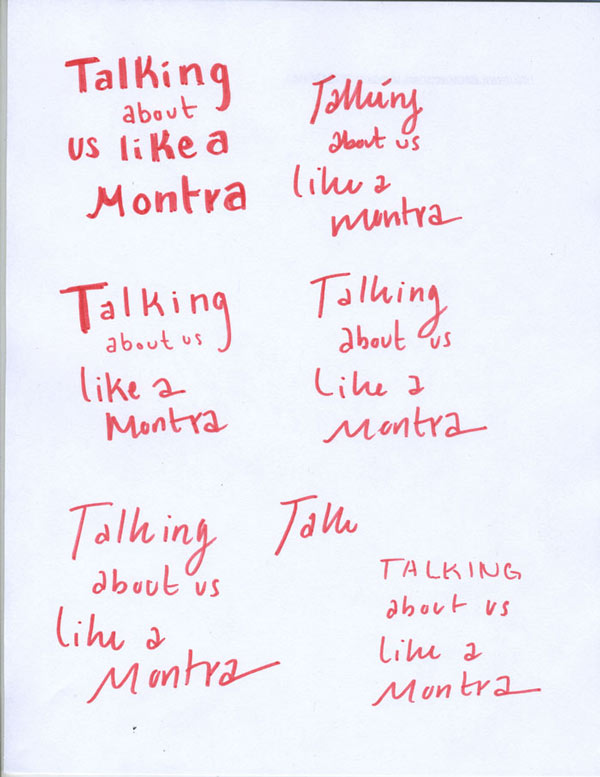 Talking
about
us like a
Montra
Talking
about us
like a
montra
Talking
about us
like a
Montra
Talking
about us
Like a
Montra
Talking
about us
like a
Montra
Talk
TALKING
about us
like a
Montra